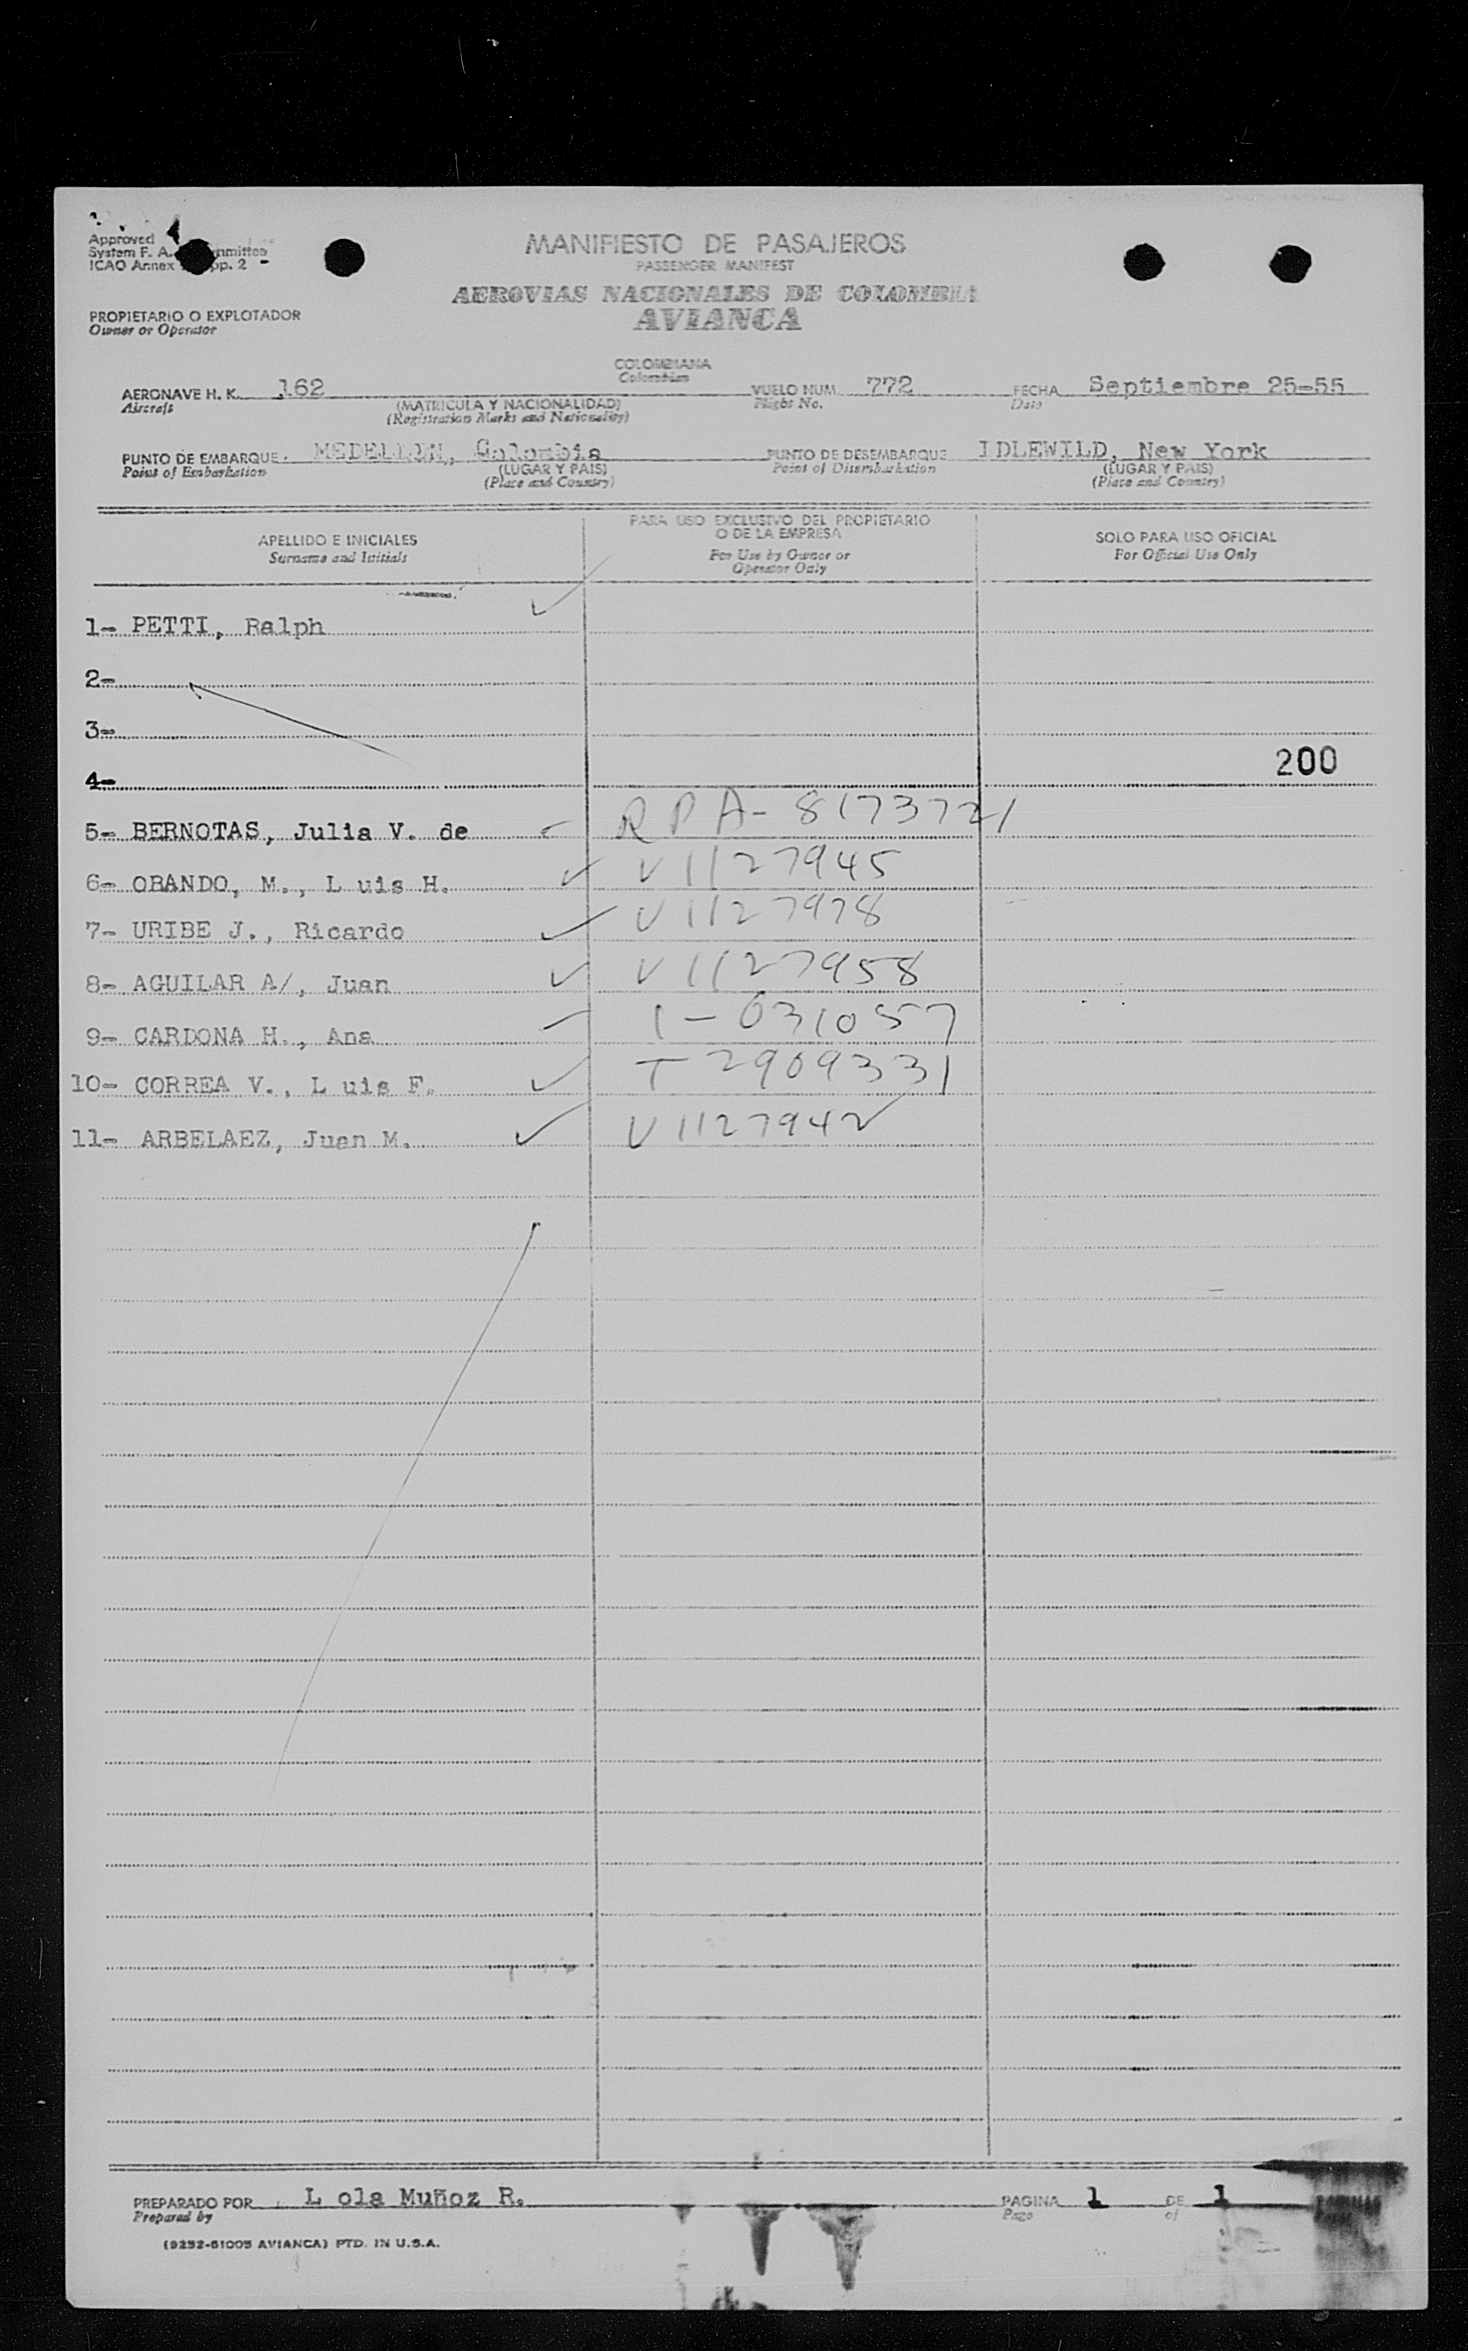 Approved
System F. A. mmittee
ICAO Annex pp. 2
MANIFIESTO DE PASAJEROS
PASSENGER MANIFEST
AEROVIAS NACIONALES DE COLOMBIA
AVIANCA
PROPIETARIO O EXPLOTADOR
Owner or Operator
COLOMBIANA
Colombian
AERONAVE H. K. 162 VUELO NUM. 772 FECHA Septiembre 25-55
Aircraft (MATRICULA Y NACIONALIDAD) Flight No. Date
(Registration Marks and Nationality)
PUNTO DE EMBARQUE. MEDELLIN, Colombia PUNTO DE DESEMBARQUE IDLEWILD, New York
Point of Embarkation (LUGAR Y PAIS) Point of Disembarkation (LUGAR Y PAIS)
(Place and Country) (Place and Country)
APELLIDO E INICIALES
Surname and Initials
PARA USO EXCLUSIVO DEL PROPIETARIO
O DE LA EMPRESA
For Use by Owner or
Operator Only
SOLO PARA USO OFICIAL
For Official Use Only
1- PETTI, Ralph
2-
3-
4- 200
5- BERNOTAS, Julia V. de RPA-8173721
6- OBANDO, M., L uis H. V1127945
7- URIBE J., Ricardo V1127978
8- AGUILAR A/, Juan V1127958
9- CARDONA H., Ana 1-031057
10- CORREA V., L uis F. T2909331
11- ARBELAEZ, Juan M. V1127942
PREPARADO POR L ola Muñoz R. PAGINA 1 DE 1
Prepared by Page of
(9252-61005 AVIANCA) PTD. IN U.S.A.